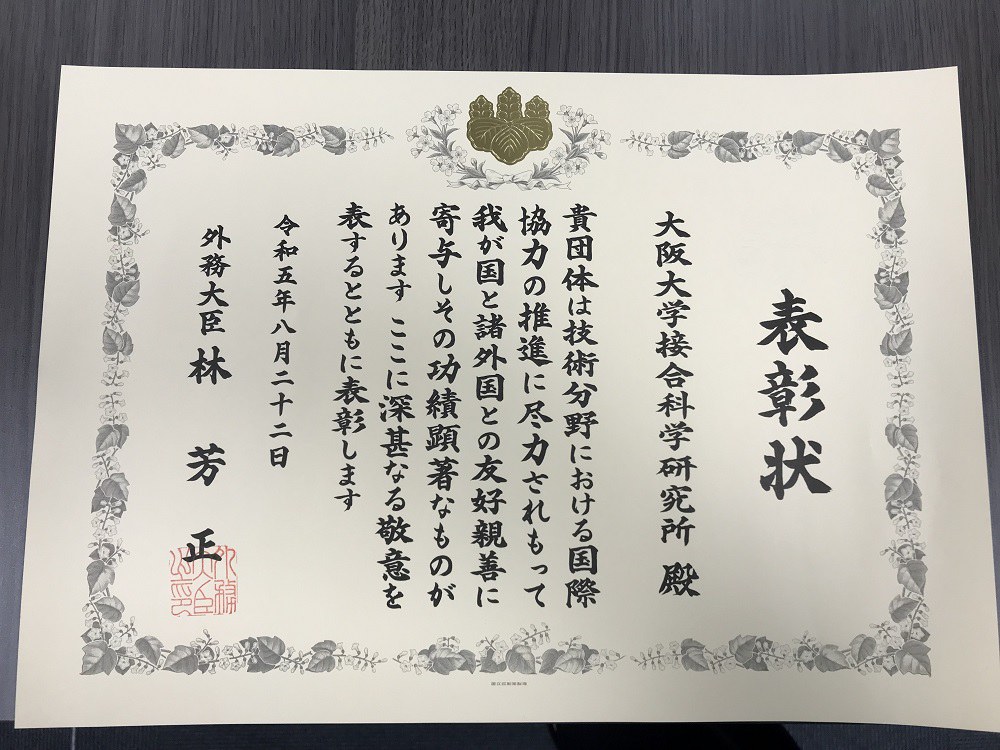 表彰状
大阪大学接合科学研究所 殿
貴団体は技術分野における国際
協力の推進に尽力されもって
我が国と諸外国との友好親善に
寄与しその功績顕著なものが
あります ここに深甚なる敬意を
表するとともに表彰します
令和五年八月二十二日
外務大臣 林 芳 正
外務大臣印